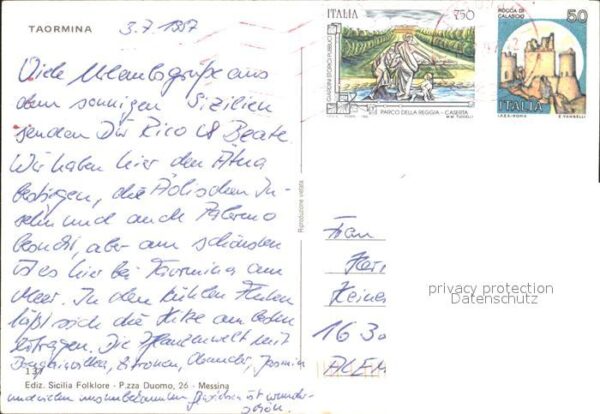 TAORMINA
3.7.1997
Viele Urlaubsgrüße aus
dem sonnigen Sizilien
senden Dir Rico & Beate.
Wir haben hier den Ätna
bestiegen, die Äolischen In-
seln und auch Palermo
besucht, aber am schönsten
ist es hier bei Taormina am
Meer. In den kühlen Fluten
läßt sich die Hitze am besten
ertragen. Die Pflanzenwelt mit
Bougainvillea, Zitronen, Oleander, Jasmin
und vielen uns unbekannten Gewächsen ist wunder-
schön.
137
Ediz. Sicilia Folklore - P.zza Duomo, 26 - Messina
Riproduzione vietata
ITALIA 750
GIARDINI STORICI PUBBLICI
PARCO DELLA REGGIA - CASERTA
ROCCA DI
CALASCIO
50
ITALIA
I.P.Z.S.-ROMA
Frau
Herr
Heine
1630
ALEM
privacy protection
Datenschutz